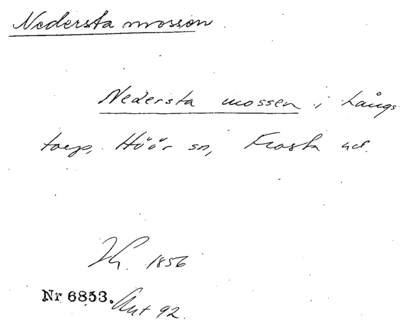 Nedersta mossen
Nedersta mossen i Långs
torp, Höör sn, Frosta hd.
1856
Nr 6853. Ant 92.